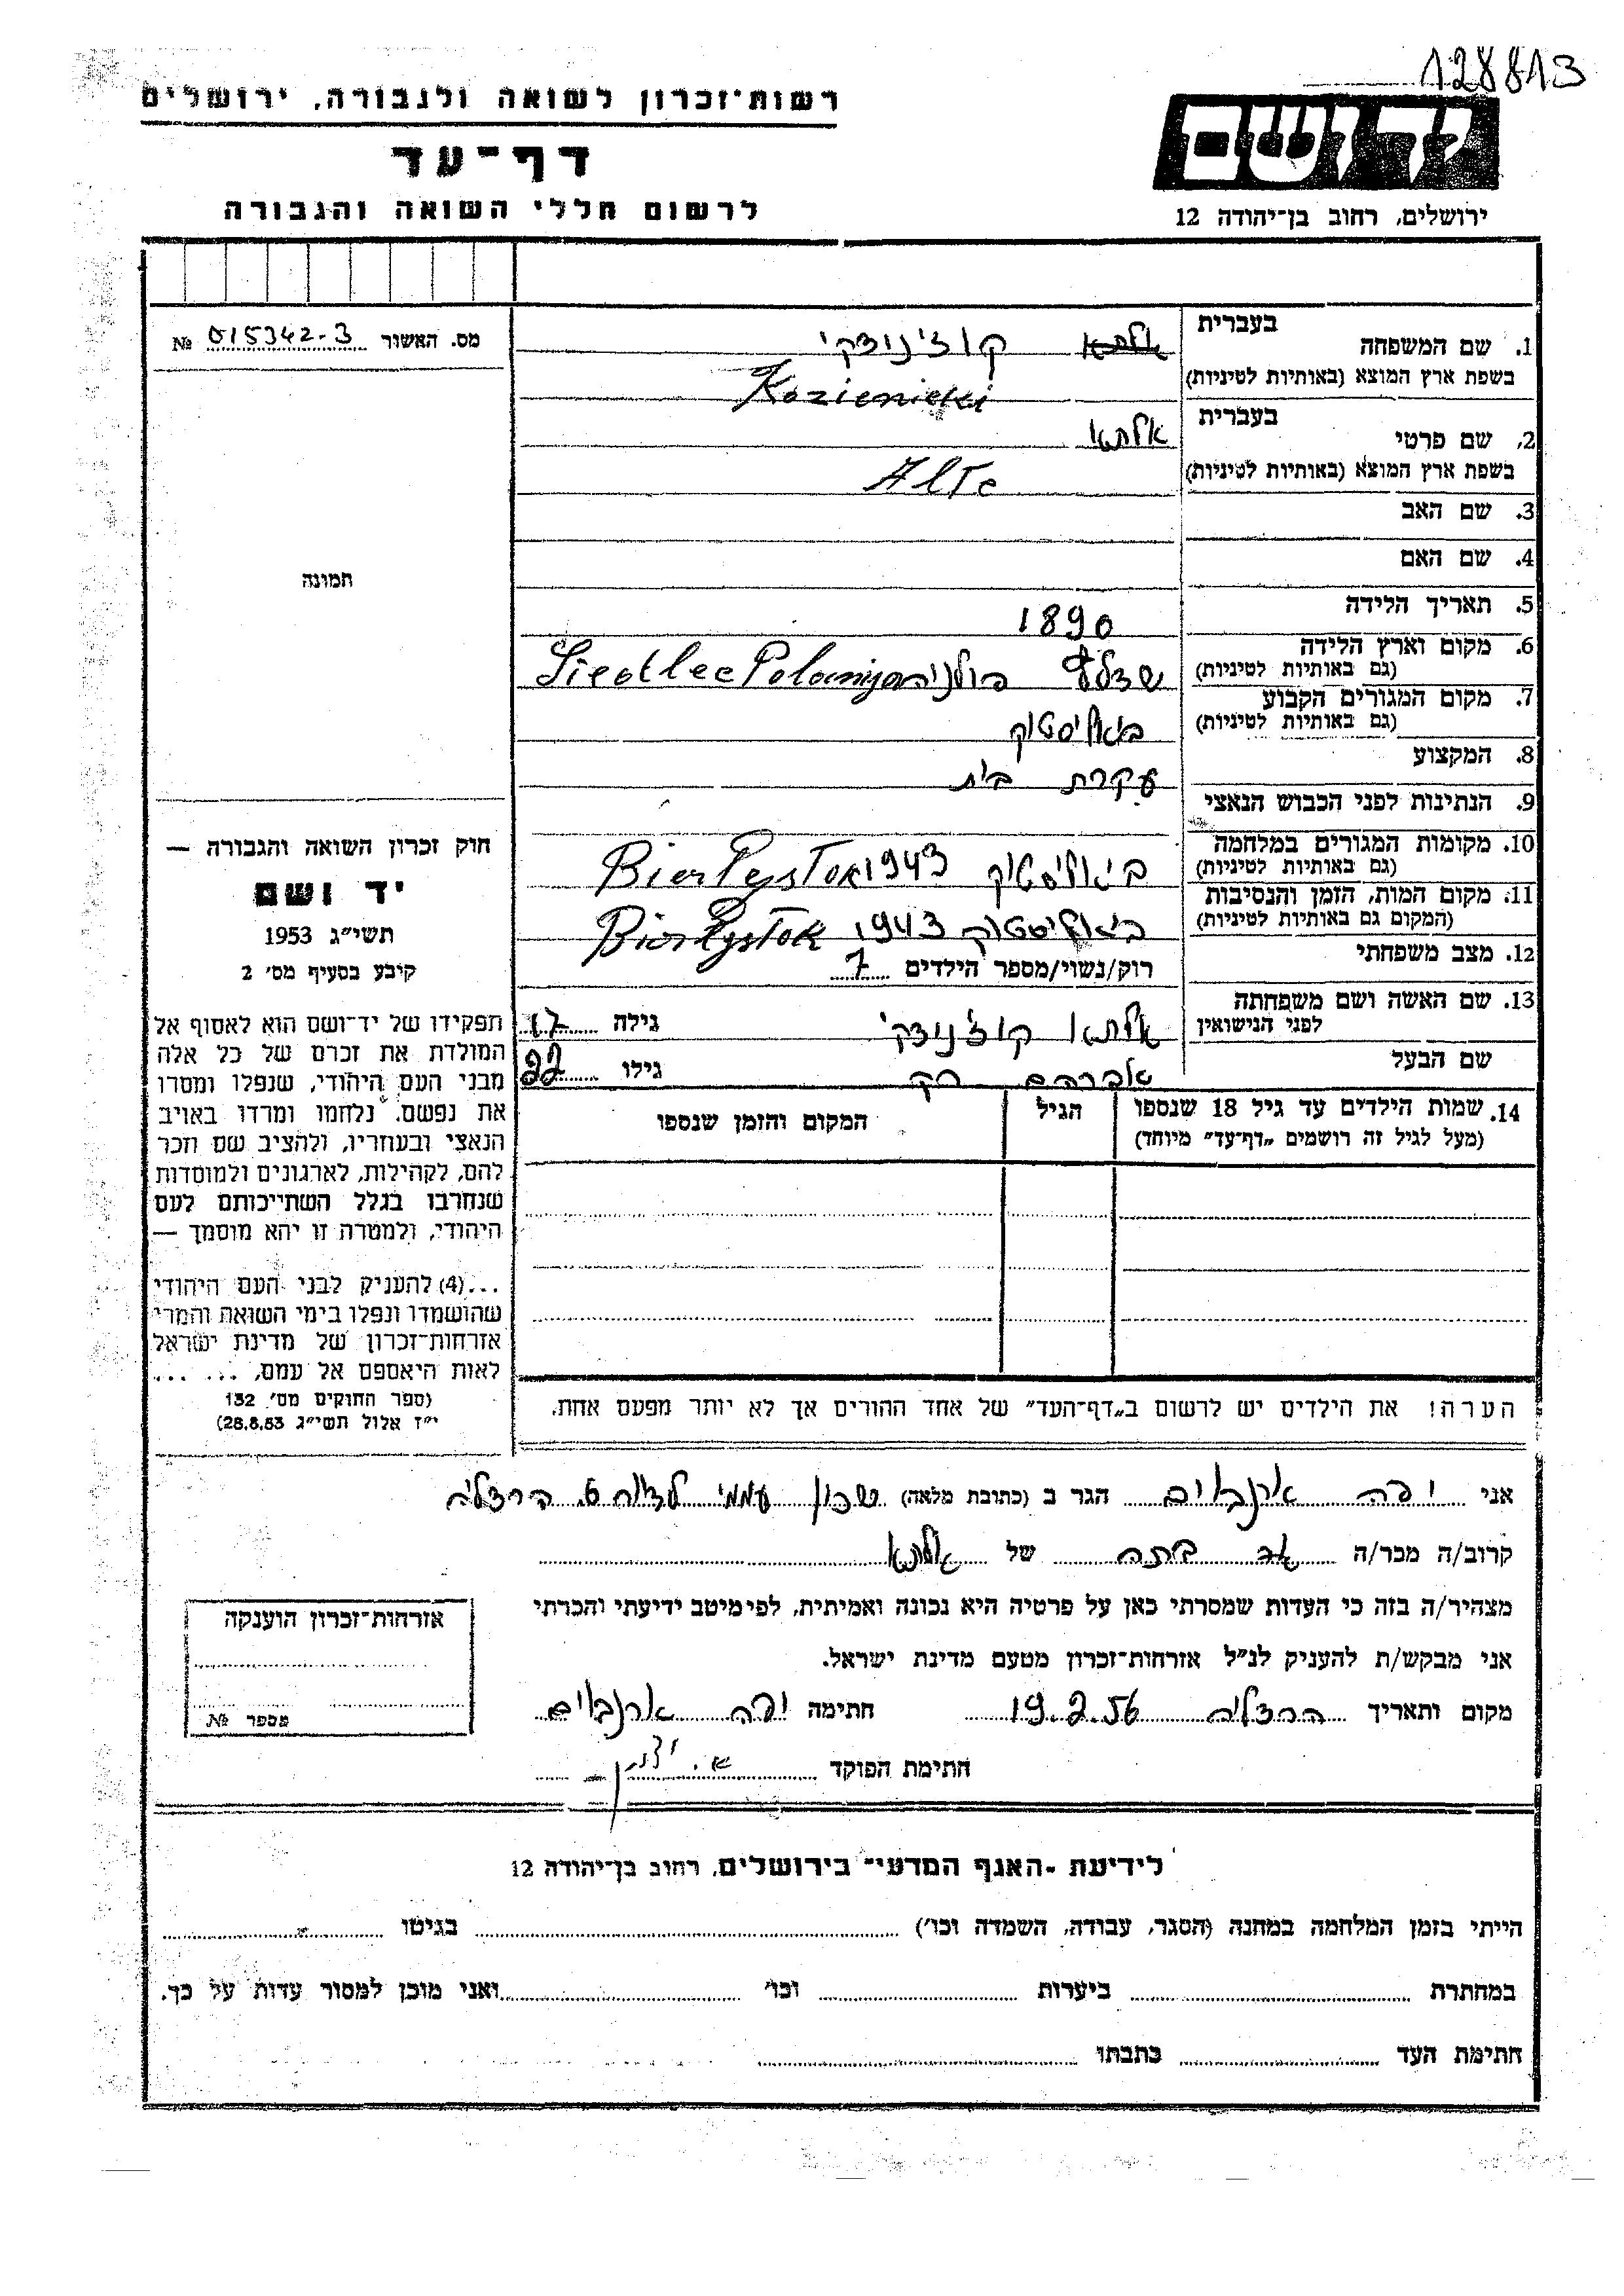 128813
רשות־זכרון לשואה ולגבורה, ירושלים
דף־עד
לרשום חללי השואה והגבורה
יד ושם
ירושלים, רחוב בן־יהודה 12
מס. האשור 015342-3 №
תמונה
חוק זכרון השואה והגבורה —
יד ושם
תשי״ג 1953
קובע בסעיף מס׳ 2
תפקידו של יד־ושם הוא לאסוף אל
המולדת את זכרם של כל אלה
מבני העם היהודי, שנפלו ומסרו
את נפשם. נלחמו ומרדו באויב
הנאצי ובעוזריו, ולהציב שם וזכר
להם, לקהילות, לארגונים ולמוסדות
שנחרבו בגלל השתייכותם לעם
היהודי, ולמטרה זו יהא מוסמך —
...(4) להעניק לבני העם היהודי
שהושמדו ונפלו בימי השואה והמרי
אזרחות־זכרון של מדינת ישראל
לאות היאספם אל עמם. ... ...
(ספר החוקים מס׳ 132
י״ז אלול תשי״ג 28.8.53)
בעברית
1. שם המשפחה קוז׳ניצקי
בשפת ארץ המוצא (באותיות לטיניות) Kozienicki
בעברית
2. שם פרטי אלתא
בשפת ארץ המוצא (באותיות לטיניות) Alte
3. שם האב
4. שם האם
5. תאריך הלידה 1890
6. מקום וארץ הלידה פולניה Siedlec Polamija
(גם באותיות לטיניות)
7. מקום המגורים הקבוע ביאליסטוק
(גם באותיות לטיניות)
8. המקצוע עקרת בית
9. הנתינות לפני הכבוש הנאצי
10. מקומות המגורים במלחמה ביאליסטוק 1943 Biarłystok
(גם באותיות לטיניות)
11. מקום המות, הזמן והנסיבות ביאליסטוק 1943 Biarłystok
(המקום גם באותיות לטיניות)
12. מצב משפחתי רוק/נשוי/מספר הילדים 7
13. שם האשה ושם משפחתה אלתא קוז׳ניצקי גילה 17
לפני הנישואין
שם הבעל אברהם גילו 22
14. שמות הילדים עד גיל 18 שנספו הגיל המקום והזמן שנספו
(מעל לגיל זה רושמים „דף־עד״ מיוחד)
הערה! את הילדים יש לרשום ב„דף־העד״ של אחד ההורים אך לא יותר מפעם אחת.
אני יפה ארנבוים הגר ב (כתובת מלאה) שכון עממי הרצליה
קרוב/ה מכר/ה בתה של אלתא
מצהיר/ה בזה כי העדות שמסרתי כאן על פרטיה היא נכונה ואמיתית, לפי מיטב ידיעתי והכרתי
אני מבקש/ת להעניק לנ״ל אזרחות־זכרון מטעם מדינת ישראל.
מקום ותאריך הרצליה 19.2.56 חתימה יפה ארנבוים
חתימת הפוקד
אזרחות־זכרון הוענקה
מספר №
לידיעת ־האגף המדעי־ בירושלים, רחוב בן־יהודה 12
הייתי בזמן המלחמה במחנה (הסגר, עבודה, השמדה וכו׳) בגיטו
במחתרת ביערות וכו׳ ואני מוכן למסור עדות על כך.
חתימת העד כתבתו